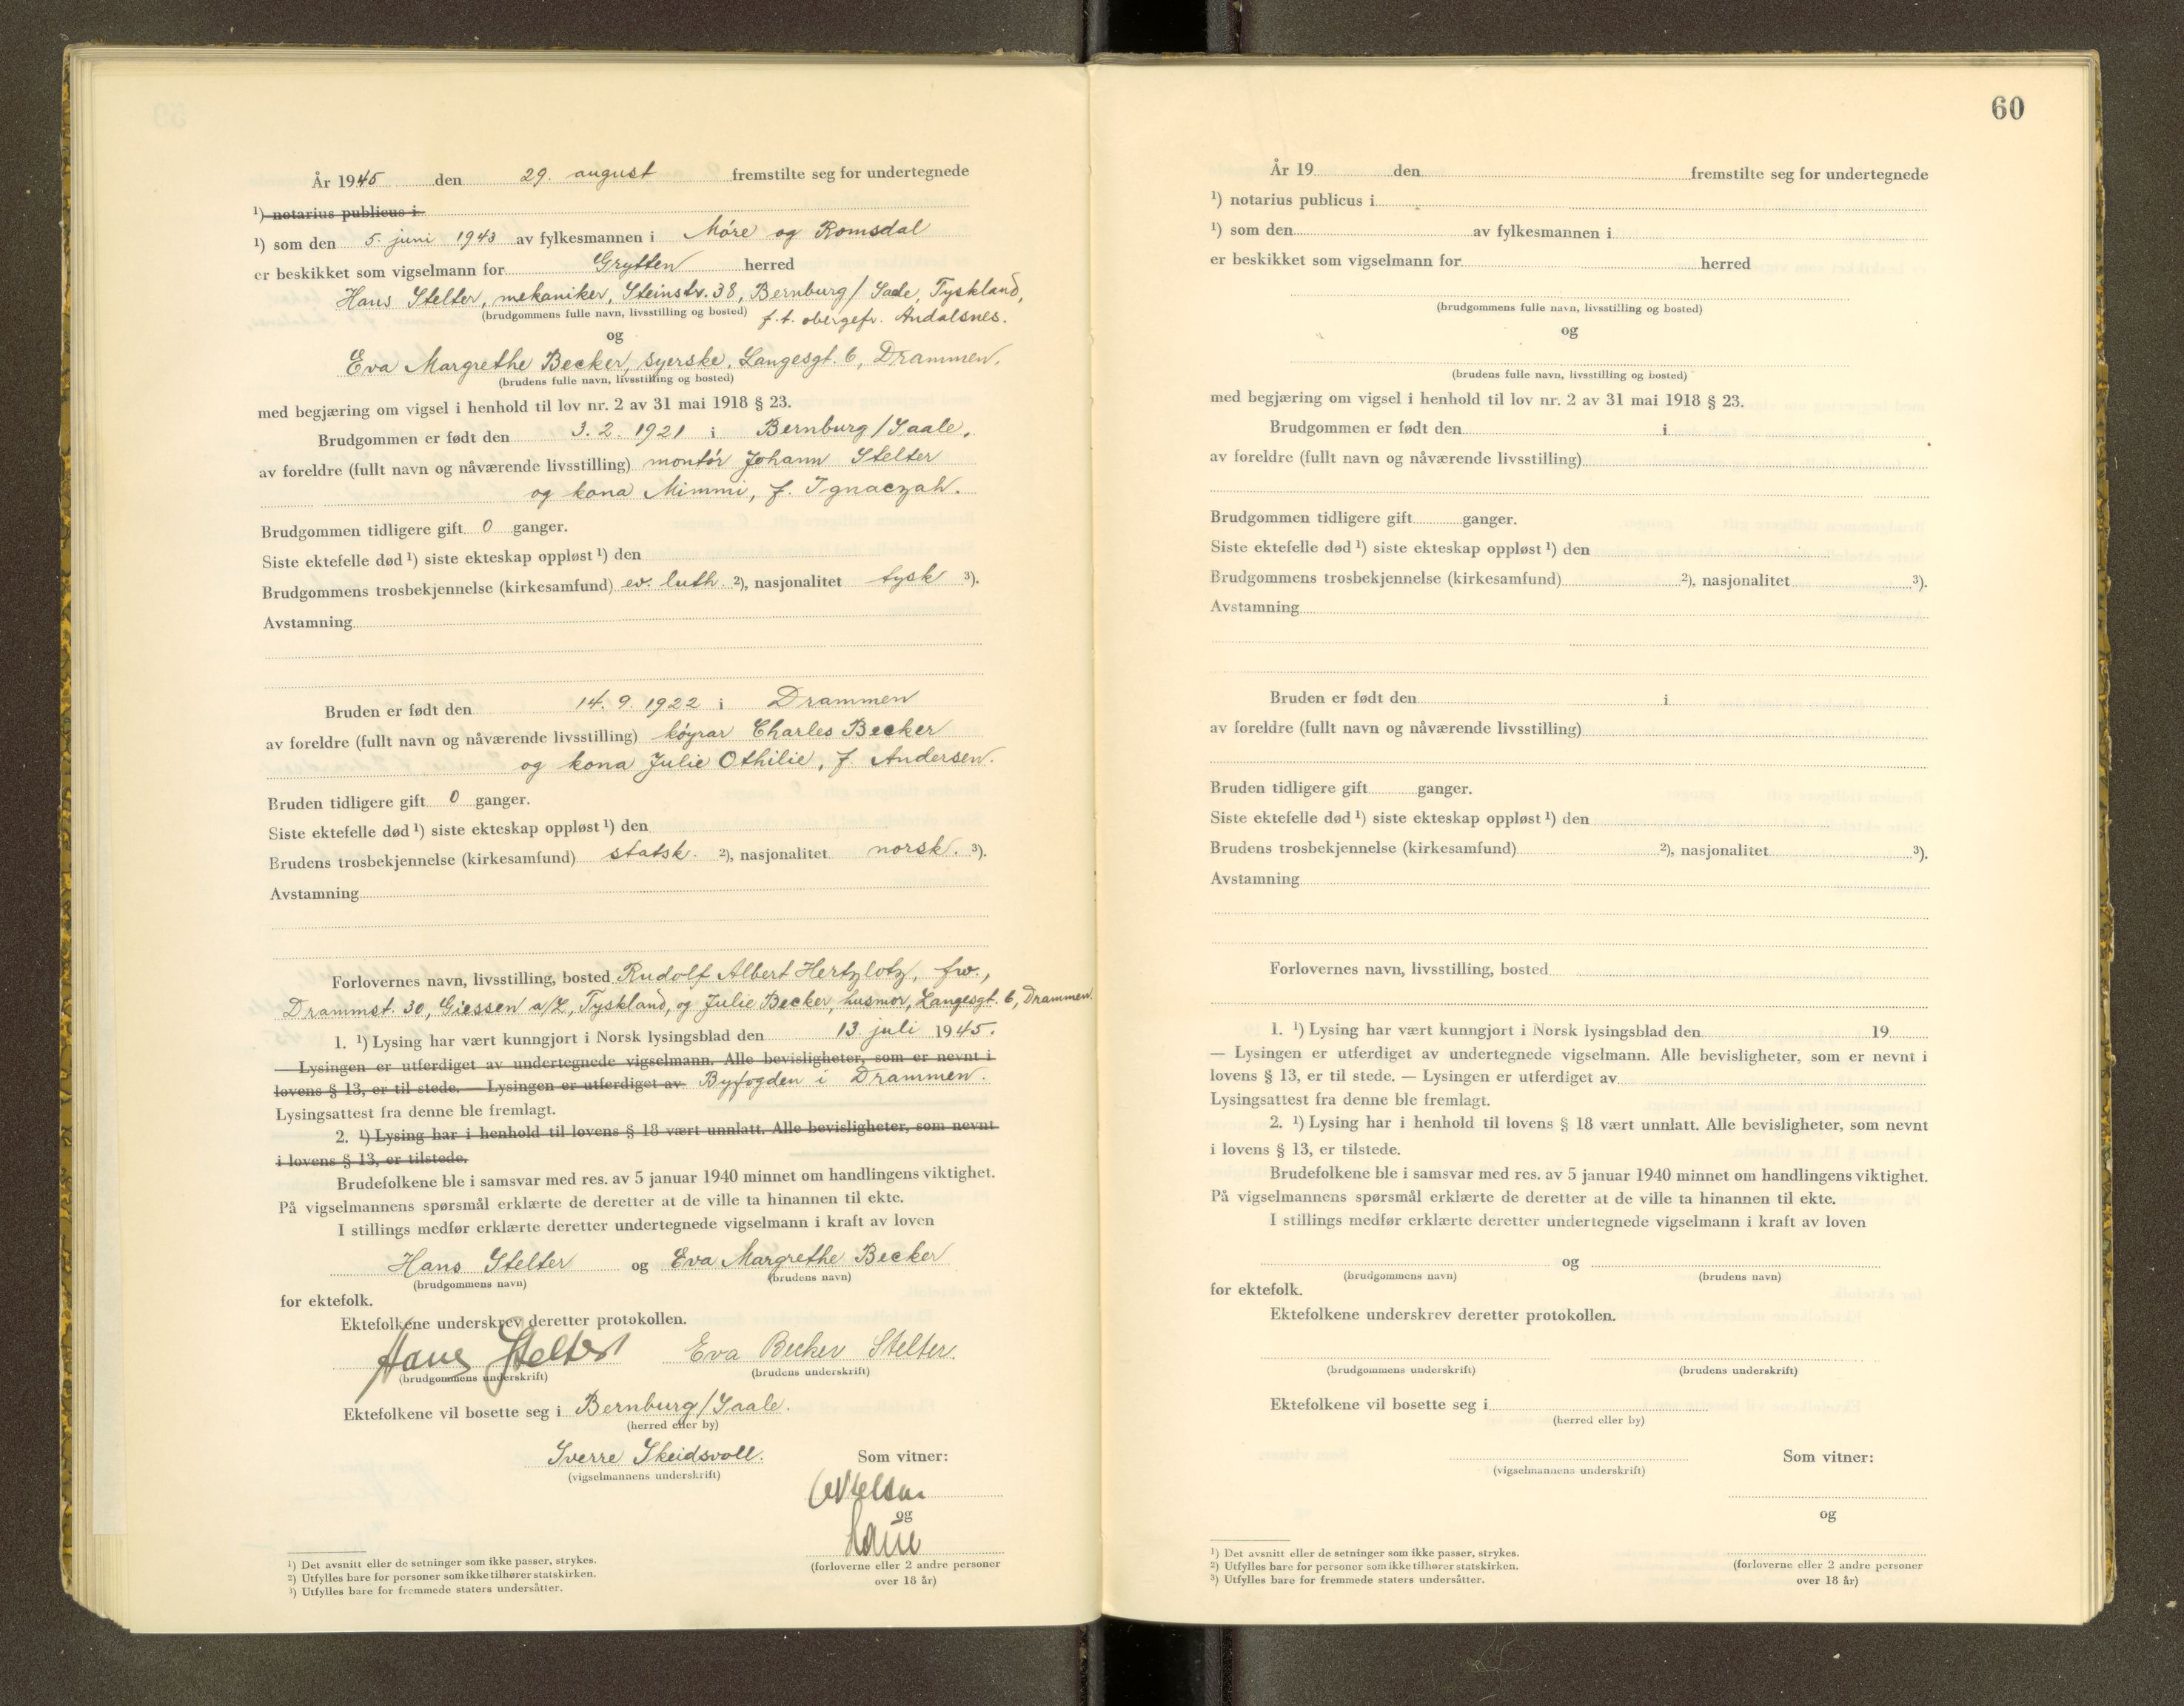 År 1945 den 29. august fremstilte seg for undertegnede
¹) notarius publicus i
¹) som den 5. juni 1943 av fylkesmannen i Møre og Romsdal
er beskikket som vigselmann for Grytten herred
Hans Stelter, mekaniker, Steinstr. 38, Bernburg/Saale, Tyskland,
(brudgommens fulle navn, livsstilling og bosted) f.t. obergefr. Åndalsnes.
og
Eva Margrethe Becker, syerske, Langesgt. 6, Drammen.
(brudens fulle navn, livsstilling og bosted)
med begjæring om vigsel i henhold til lov nr. 2 av 31 mai 1918 § 23.
Brudgommen er født den 3. 2. 1921 i Bernburg/Saale.
av foreldre (fullt navn og nåværende livsstilling) montør Johann Stelter
og kona Mimmi, f. Ignaczah.
Brudgommen tidligere gift 0 ganger.
Siste ektefelle død ¹) siste ekteskap oppløst ¹) den
Brudgommens trosbekjennelse (kirkesamfund) ev. luth. ²), nasjonalitet tysk ³).
Avstamning
Bruden er født den 14. 9. 1922 i Drammen
av foreldre (fullt navn og nåværende livsstilling) køyrar Charles Becker
og kona Julie Othilie, f. Andersen.
Bruden tidligere gift 0 ganger.
Siste ektefelle død ¹) siste ekteskap oppløst ¹) den
Brudens trosbekjennelse (kirkesamfund) statsk. ²), nasjonalitet norsk. ³).
Avstamning
Forlovernes navn, livsstilling, bosted Rudolf Albert Hertzlotz, fw.,
Drammst. 30, Giessen a/L, Tyskland, og Julie Becker, husmor, Langesgt. 6, Drammen.
1. ¹) Lysing har vært kunngjort i Norsk lysingsblad den 13. juli 1945.
— Lysingen er utferdiget av undertegnede vigselmann. Alle bevisligheter, som er nevnt i
lovens § 13, er til stede. — Lysingen er utferdiget av Byfogden i Drammen.
Lysingsattest fra denne ble fremlagt.
2. ¹) Lysing har i henhold til lovens § 18 vært unnlatt. Alle bevisligheter, som nevnt
i lovens § 13, er tilstede.
Brudefolkene ble i samsvar med res. av 5 januar 1940 minnet om handlingens viktighet.
På vigselmannens spørsmål erklærte de deretter at de ville ta hinannen til ekte.
I stillings medfør erklærte deretter undertegnede vigselmann i kraft av loven
Hans Stelter og Eva Margrethe Becker
(brudgommens navn) (brudens navn)
for ektefolk.
Ektefolkene underskrev deretter protokollen.
Hans Stelter Eva Becker Stelter.
(brudgommens underskrift) (brudens underskrift)
Ektefolkene vil bosette seg i Bernburg/Saale.
(herred eller by)
Sverre Skeidsvoll. Som vitner:
(vigselmannens underskrift)
og
(forloverne eller 2 andre personer
over 18 år)
¹) Det avsnitt eller de setninger som ikke passer, strykes.
²) Utfylles bare for personer som ikke tilhører statskirken.
³) Utfylles bare for fremmede staters undersåtter.
60
År 19 den fremstilte seg for undertegnede
¹) notarius publicus i
¹) som den av fylkesmannen i
er beskikket som vigselmann for herred
(brudgommens fulle navn, livsstilling og bosted)
og
(brudens fulle navn, livsstilling og bosted)
med begjæring om vigsel i henhold til lov nr. 2 av 31 mai 1918 § 23.
Brudgommen er født den i
av foreldre (fullt navn og nåværende livsstilling)
Brudgommen tidligere gift ganger.
Siste ektefelle død ¹) siste ekteskap oppløst ¹) den
Brudgommens trosbekjennelse (kirkesamfund) ²), nasjonalitet ³).
Avstamning
Bruden er født den i
av foreldre (fullt navn og nåværende livsstilling)
Bruden tidligere gift ganger.
Siste ektefelle død ¹) siste ekteskap oppløst ¹) den
Brudens trosbekjennelse (kirkesamfund) ²), nasjonalitet ³).
Avstamning
Forlovernes navn, livsstilling, bosted
1. ¹) Lysing har vært kunngjort i Norsk lysingsblad den 19
— Lysingen er utferdiget av undertegnede vigselmann. Alle bevisligheter, som er nevnt i
lovens § 13, er til stede. — Lysingen er utferdiget av
Lysingsattest fra denne ble fremlagt.
2. ¹) Lysing har i henhold til lovens § 18 vært unnlatt. Alle bevisligheter, som nevnt
i lovens § 13, er tilstede.
Brudefolkene ble i samsvar med res. av 5 januar 1940 minnet om handlingens viktighet.
På vigselmannens spørsmål erklærte de deretter at de ville ta hinannen til ekte.
I stillings medfør erklærte deretter undertegnede vigselmann i kraft av loven
og
(brudgommens navn) (brudens navn)
for ektefolk.
Ektefolkene underskrev deretter protokollen.
(brudgommens underskrift) (brudens underskrift)
Ektefolkene vil bosette seg i
(herred eller by)
Som vitner:
(vigselmannens underskrift)
og
(forloverne eller 2 andre personer
over 18 år)
¹) Det avsnitt eller de setninger som ikke passer, strykes.
²) Utfylles bare for personer som ikke tilhører statskirken.
³) Utfylles bare for fremmede staters undersåtter.